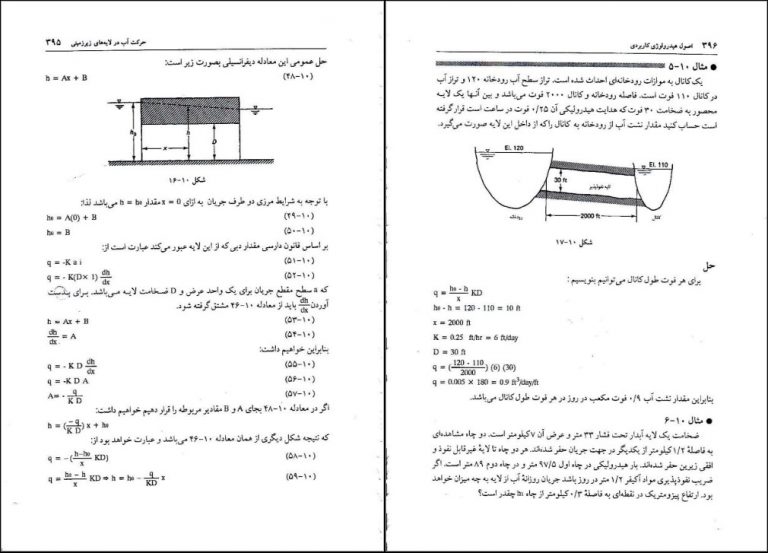 حرکت آب در لایه‌های زیرزمینی ۳۹۵
حل عمومی این معادله دیفرانسیلی بصورت زیر است:
h = Ax + B (۱۰-۴۸)
h₀
h
x
D
شکل ۱۰-۱۶
با توجه به شرایط مرزی دو طرف جریان به ازای x = 0 مقدار h = h₀ می‌باشد لذا:
h₀ = A(0) + B (۱۰-۴۹)
h₀ = B (۱۰-۵۰)
بر اساس قانون دارسی مقدار دبی که از این لایه عبور می‌کند عبارت است از:
q = -K a i (۱۰-۵۱)
q = - K(D× 1) dh/dx (۱۰-۵۲)
که a سطح مقطع جریان برای یک واحد عرض و D ضخامت لایه می‌باشد. برای بدست
آوردن dh/dx باید از معادله ۱۰-۴۶ مشتق گرفته شود.
h = Ax + B (۱۰-۵۳)
dh/dx = A (۱۰-۵۴)
بنابراین خواهیم داشت:
q = - K D dh/dx (۱۰-۵۵)
q = -K D A (۱۰-۵۶)
A= - q/K D (۱۰-۵۷)
اگر در معادله ۱۰-۴۸ بجای A و B مقادیر مربوطه را قرار دهیم خواهیم داشت:
h = (-q/K D) x + h₀
که نتیجه شکل دیگری از همان معادله ۱۰-۴۶ می‌باشد و عبارت خواهد بود از:
q = - (h-h₀/x) KD (۱۰-۵۸)
q = h₀ - h/x KD ⇒ h = h₀ - q/KD x (۱۰-۵۹)
۳۹۶ اصول هیدرولوژی کاربردی
● مثال ۱۰-۵
یک کانال به موازات رودخانه‌ای احداث شده است. تراز سطح آب رودخانه ۱۲۰ و تراز آب
در کانال ۱۱۰ فوت است. فاصله رودخانه و کانال ۲۰۰۰ فوت می‌باشد و بین آنها یک لایه
محصور به ضخامت ۳۰ فوت که هدایت هیدرولیکی آن ۰/۲۵ فوت در ساعت است قرار گرفته
است حساب کنید مقدار نشت آب از رودخانه به کانال را که از داخل این لایه صورت می‌گیرد.
El. 120
El. 110
30 ft
لایه نفوذپذیر
2000 ft
رودخانه
کانال
شکل ۱۰-۱۷
حل
برای هر فوت طول کانال می‌توانیم بنویسیم:
q = h₀ - h/x KD
h₀ - h = 120 - 110 = 10 ft
x = 2000 ft
K = 0.25 ft/hr = 6 ft/day
D = 30 ft
q = (120 - 110/2000) (6) (30)
q = 0.005 × 180 = 0.9 ft³/day/ft
بنابراین مقدار نشت آب ۰/۹ فوت مکعب در روز در هر فوت طول کانال می‌باشد.
● مثال ۱۰-۶
ضخامت یک لایه آبدار تحت فشار ۳۳ متر و عرض آن ۷ کیلومتر است. دو چاه مشاهده‌ای
به فاصلهٔ ۱/۲ کیلومتر از یکدیگر در جهت جریان حفر شده‌اند. هر دو چاه تا لایهٔ غیرقابل نفوذ و
افقی زیرین حفر شده‌اند. بار هیدرولیکی در چاه اول ۹۷/۵ متر و در چاه دوم ۸۹ متر است. اگر
ضریب نفوذپذیری مواد آکیفر ۱/۲ متر در روز باشد جریان روزانهٔ آب از لایه به چه میزان خواهد
بود. ارتفاع پیزومتریک در نقطه‌ای به فاصلهٔ ۰/۳ کیلومتر از چاه h₁ چقدر است؟